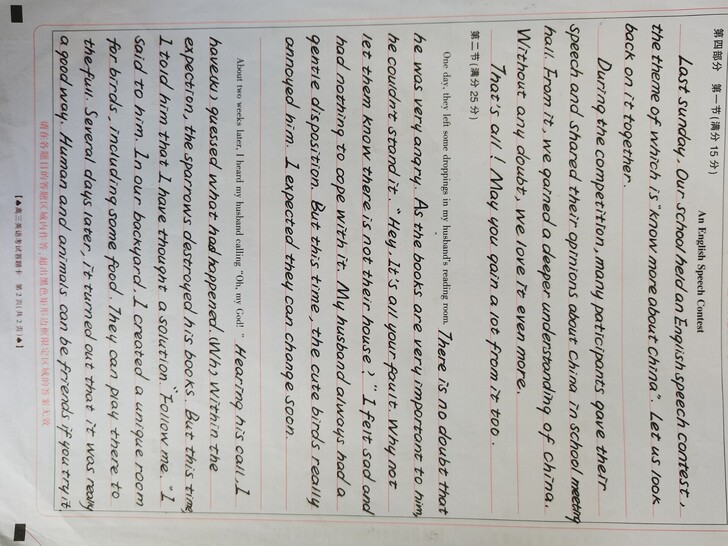 第四部分 第一节(满分 15 分)
An English Speech Contest
Last sunday. Our school held an English speech contest,
the theme of which is "know more about China". Let us look
back on it together.
During the competition, many participants gave their
speech and shared their opinions about China in school meeting
hall. From it, we gained a deeper understanding of China.
Without any doubt, we love it even more.
That's all! May you gain a lot from it too.
第二节(满分 25 分)
One day, they left some droppings in my husband's reading room. There is no doubt that
he was very angry. As the books are very important to him,
he couldn't stand it. "Hey, It's all your fault. Why not
let them know there is not their house?" I felt sad and
had nothing to cope with it. My husband always had a
gentle disposition. But this time, the cute birds really
annoyed him. I expected they can change soon.
About two weeks later, I heard my husband calling "Oh, my God!" Hearing his call, I
guessed what had happened. Within the
expection, the sparrows destroyed his books. But this time,
I told him that I have thought a solution. "Follow me." I
said to him. In our backyard, I created a unique room
for birds, including some food. They can play there to
the full. Several days later, it turned out that it was really
a good way. Human and animals can be friends if you try it.
请在各题目的答题区域内作答,超出黑色矩形边框限定区域的答案无效
【♠高三英语考试答题卡 第 2 页(共 2 页)♠】